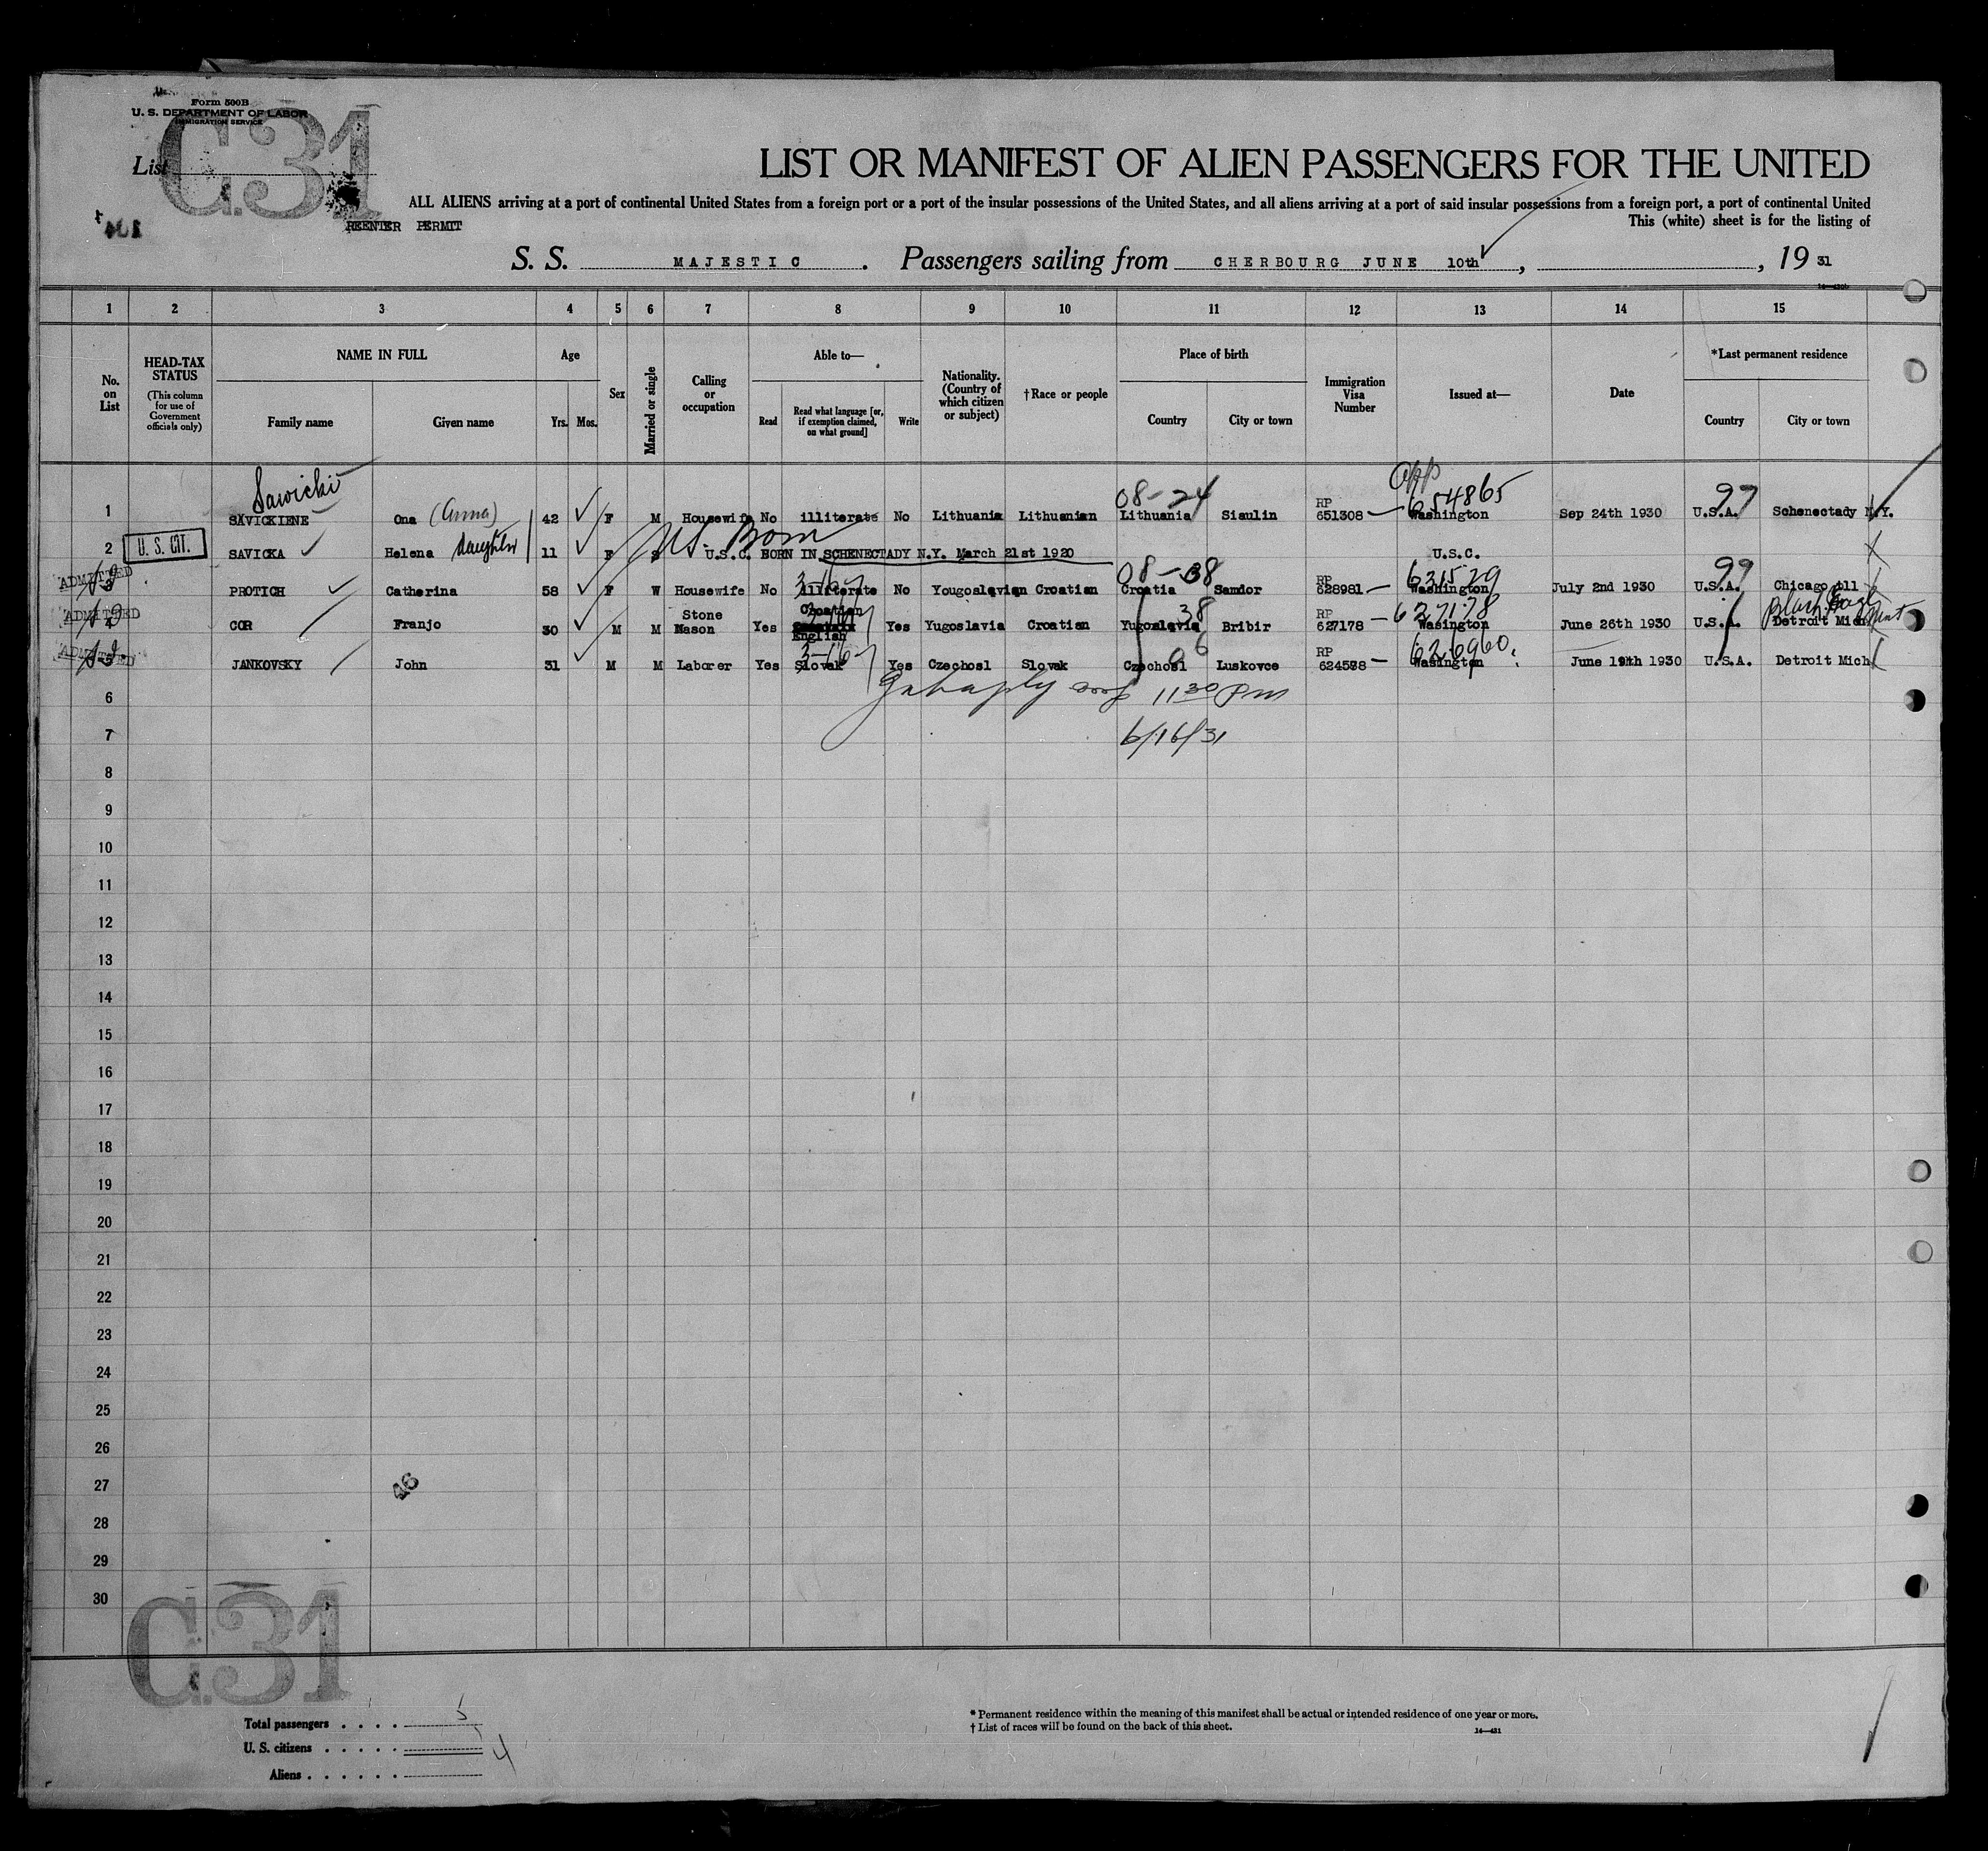 Form 500B
U. S. DEPARTMENT OF LABOR
IMMIGRATION SERVICE
C.31
List
LIST OR MANIFEST OF ALIEN PASSENGERS FOR THE UNITED
ALL ALIENS arriving at a port of continental United States from a foreign port or a port of the insular possessions of the United States, and all aliens arriving at a port of said insular possessions from a foreign port, a port of continental United
This (white) sheet is for the listing of
REENTER PERMIT
S. S. MAJESTIC. Passengers sailing from CHERBOURG JUNE 10th, , 19 31
1 2 3 4 5 6 7 8 9 10 11 12 13 14 15
No. on List
HEAD-TAX STATUS
(This column for use of Government officials only)
NAME IN FULL
Family name Given name
Age
Yrs. Mos.
Sex
Married or single
Calling or occupation
Able to—
Read
Read what language [or, if exemption claimed, on what ground]
Write
Nationality. (Country of which citizen or subject)
†Race or people
Place of birth
Country City or town
Immigration Visa Number
Issued at—
Date
*Last permanent residence
Country City or town
Sawicki 08-24 app 654865 99
1 SAVICKIENE Ona (Anna) 42 F M Housewife No illiterate No Lithuania Lithuanian Lithuania Siaulin RP 651308 Washington Sep 24th 1930 U.S.A. Schenectady N.Y.
US. Born
2 U. S. CIT. SAVICKA Helena daughter 11 F S U.S.C. BORN IN SCHENECTADY N.Y. March 21st 1920 U.S.C.
ADMITTED 3-16 08-38 631529 99
3 PROTICH Catherina 58 F W Housewife No illiterate No Yougoslavian Croatian Croatia Samdor RP 628981 Washington July 2nd 1930 U.S.A. Chicago Ill
ADMITTED 38 627178 Black Eagle Mont
4 COR Franjo 30 M M Stone Mason Yes Croatian English Yes Yugoslavia Croatian Yugoslavia Bribir RP 627178 Wasington June 26th 1930 U.S.A. Detroit Mich
ADMITTED 3-16 06 626960
5 JANKOVSKY John 31 M M Laborer Yes Slovak Yes Czechosl Slovak Czechosl Luskovce RP 624588 Wasington June 19th 1930 U.S.A. Detroit Mich
6 11 30 pm
7 6/16/31
8
9
10
11
12
13
14
15
16
17
18
19
20
21
22
23
24
25
26
27
46
28
29
30
C.31
Total passengers . . . . 5
U. S. citizens . . . . . 1
Aliens . . . . . . 4
* Permanent residence within the meaning of this manifest shall be actual or intended residence of one year or more.
† List of races will be found on the back of this sheet.
14—431